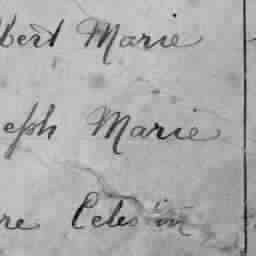 lbert Marie
seph Marie
re Celestin